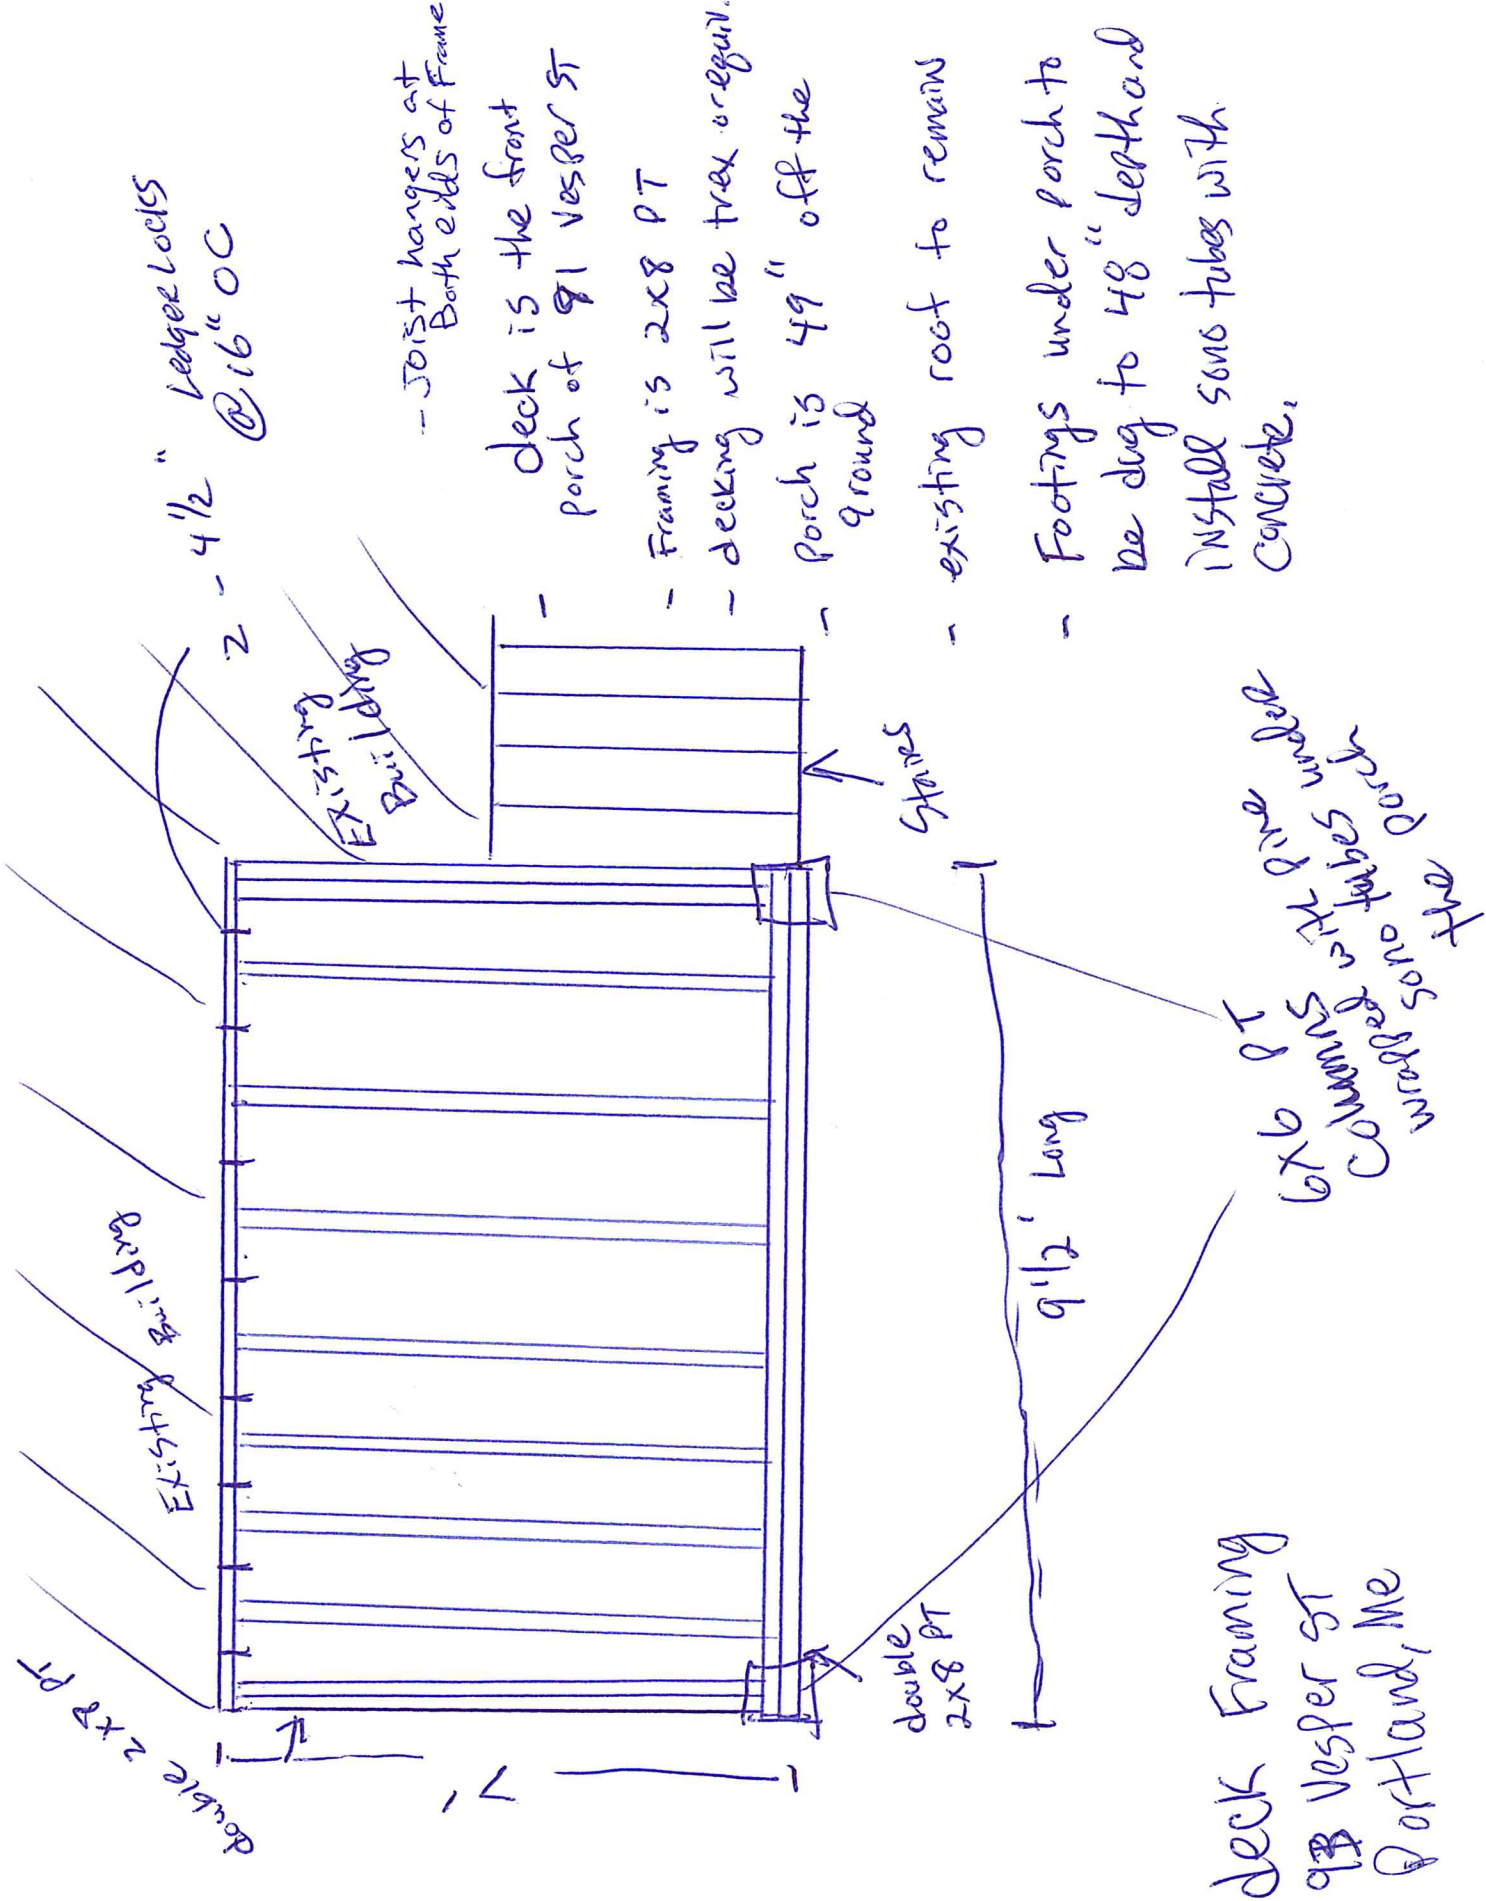 2 - 4 1/2" Ledger Locks
@ 16" OC
- Joist hangers at
Both ends of Frame
- deck is the front
porch of 91 Vesper ST
- Framing is 2x8 PT
- decking will be trex or equiv.
- Porch is 49" off the
ground
- existing roof to remain
- Footings under porch to
be dug to 48" depth and
install sono tubes with
concrete.
Existing
Building
Existing Building
Stairs
double 2x8 PT
7'
double
2x8 PT
9 1/2' Long
6x6 PT
Columns with Pine
wrapped sono tubes under
the porch
deck Framing
Vesper ST
Portland, Me